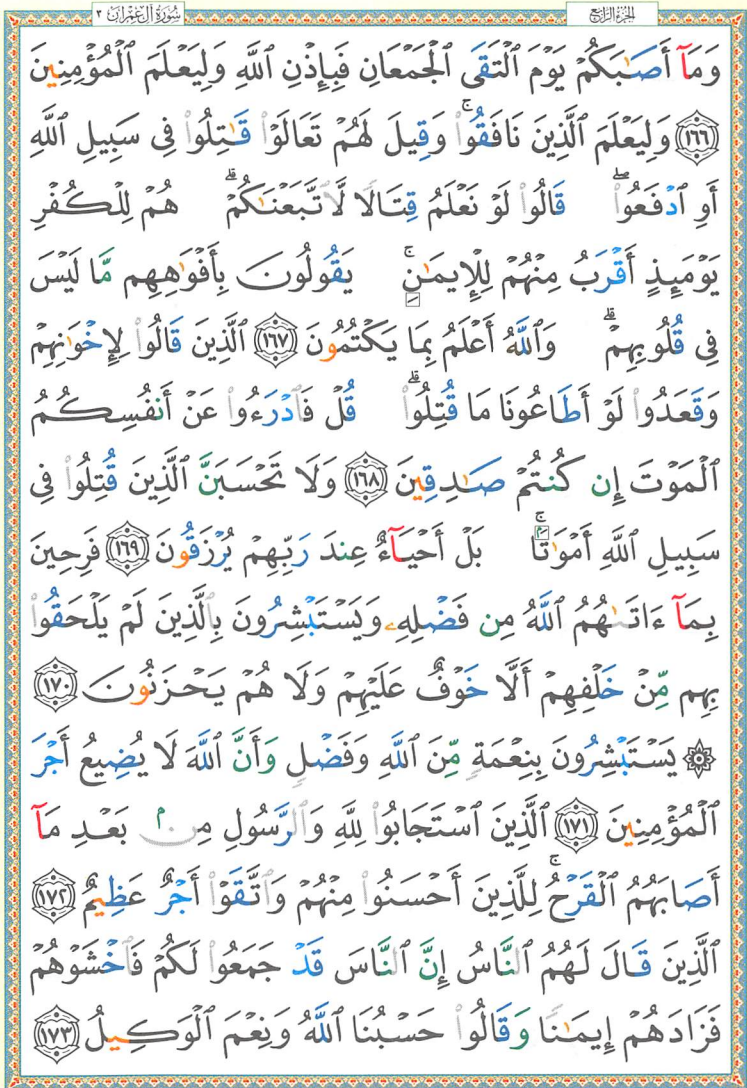 سُورَةُ آلِ عِمْرَانَ ٣
الجُزءُ الرَّابِعُ
وَمَآ أَصَٰبَكُمْ يَوْمَ ٱلْتَقَى ٱلْجَمْعَانِ فَبِإِذْنِ ٱللَّهِ وَلِيَعْلَمَ ٱلْمُؤْمِنِينَ
١٦٦ وَلِيَعْلَمَ ٱلَّذِينَ نَافَقُوا۟ ۚ وَقِيلَ لَهُمْ تَعَالَوْا۟ قَٰتِلُوا۟ فِى سَبِيلِ ٱللَّهِ
أَوِ ٱدْفَعُوا۟ ۖ قَالُوا۟ لَوْ نَعْلَمُ قِتَالًا لَّٱتَّبَعْنَٰكُمْ ۗ هُمْ لِلْكُفْرِ
يَوْمَئِذٍ أَقْرَبُ مِنْهُمْ لِلْإِيمَٰنِ ۚ يَقُولُونَ بِأَفْوَٰهِهِم مَّا لَيْسَ
فِى قُلُوبِهِمْ ۗ وَٱللَّهُ أَعْلَمُ بِمَا يَكْتُمُونَ ١٦٧ ٱلَّذِينَ قَالُوا۟ لِإِخْوَٰنِهِمْ
وَقَعَدُوا۟ لَوْ أَطَاعُونَا مَا قُتِلُوا۟ ۗ قُلْ فَٱدْرَءُوا۟ عَنْ أَنفُسِكُمُ
ٱلْمَوْتَ إِن كُنتُمْ صَٰدِقِينَ ١٦٨ وَلَا تَحْسَبَنَّ ٱلَّذِينَ قُتِلُوا۟ فِى
سَبِيلِ ٱللَّهِ أَمْوَٰتًۢا ۚ بَلْ أَحْيَآءٌ عِندَ رَبِّهِمْ يُرْزَقُونَ ١٦٩ فَرِحِينَ
بِمَآ ءَاتَىٰهُمُ ٱللَّهُ مِن فَضْلِهِۦ وَيَسْتَبْشِرُونَ بِٱلَّذِينَ لَمْ يَلْحَقُوا۟
بِهِم مِّنْ خَلْفِهِمْ أَلَّا خَوْفٌ عَلَيْهِمْ وَلَا هُمْ يَحْزَنُونَ ١٧٠
۞ يَسْتَبْشِرُونَ بِنِعْمَةٍ مِّنَ ٱللَّهِ وَفَضْلٍ وَأَنَّ ٱللَّهَ لَا يُضِيعُ أَجْرَ
ٱلْمُؤْمِنِينَ ١٧١ ٱلَّذِينَ ٱسْتَجَابُوا۟ لِلَّهِ وَٱلرَّسُولِ مِنۢ بَعْدِ مَآ
أَصَابَهُمُ ٱلْقَرْحُ ۚ لِلَّذِينَ أَحْسَنُوا۟ مِنْهُمْ وَٱتَّقَوْا۟ أَجْرٌ عَظِيمٌ ١٧٢
ٱلَّذِينَ قَالَ لَهُمُ ٱلنَّاسُ إِنَّ ٱلنَّاسَ قَدْ جَمَعُوا۟ لَكُمْ فَٱخْشَوْهُمْ
فَزَادَهُمْ إِيمَٰنًا وَقَالُوا۟ حَسْبُنَا ٱللَّهُ وَنِعْمَ ٱلْوَكِيلُ ١٧٣